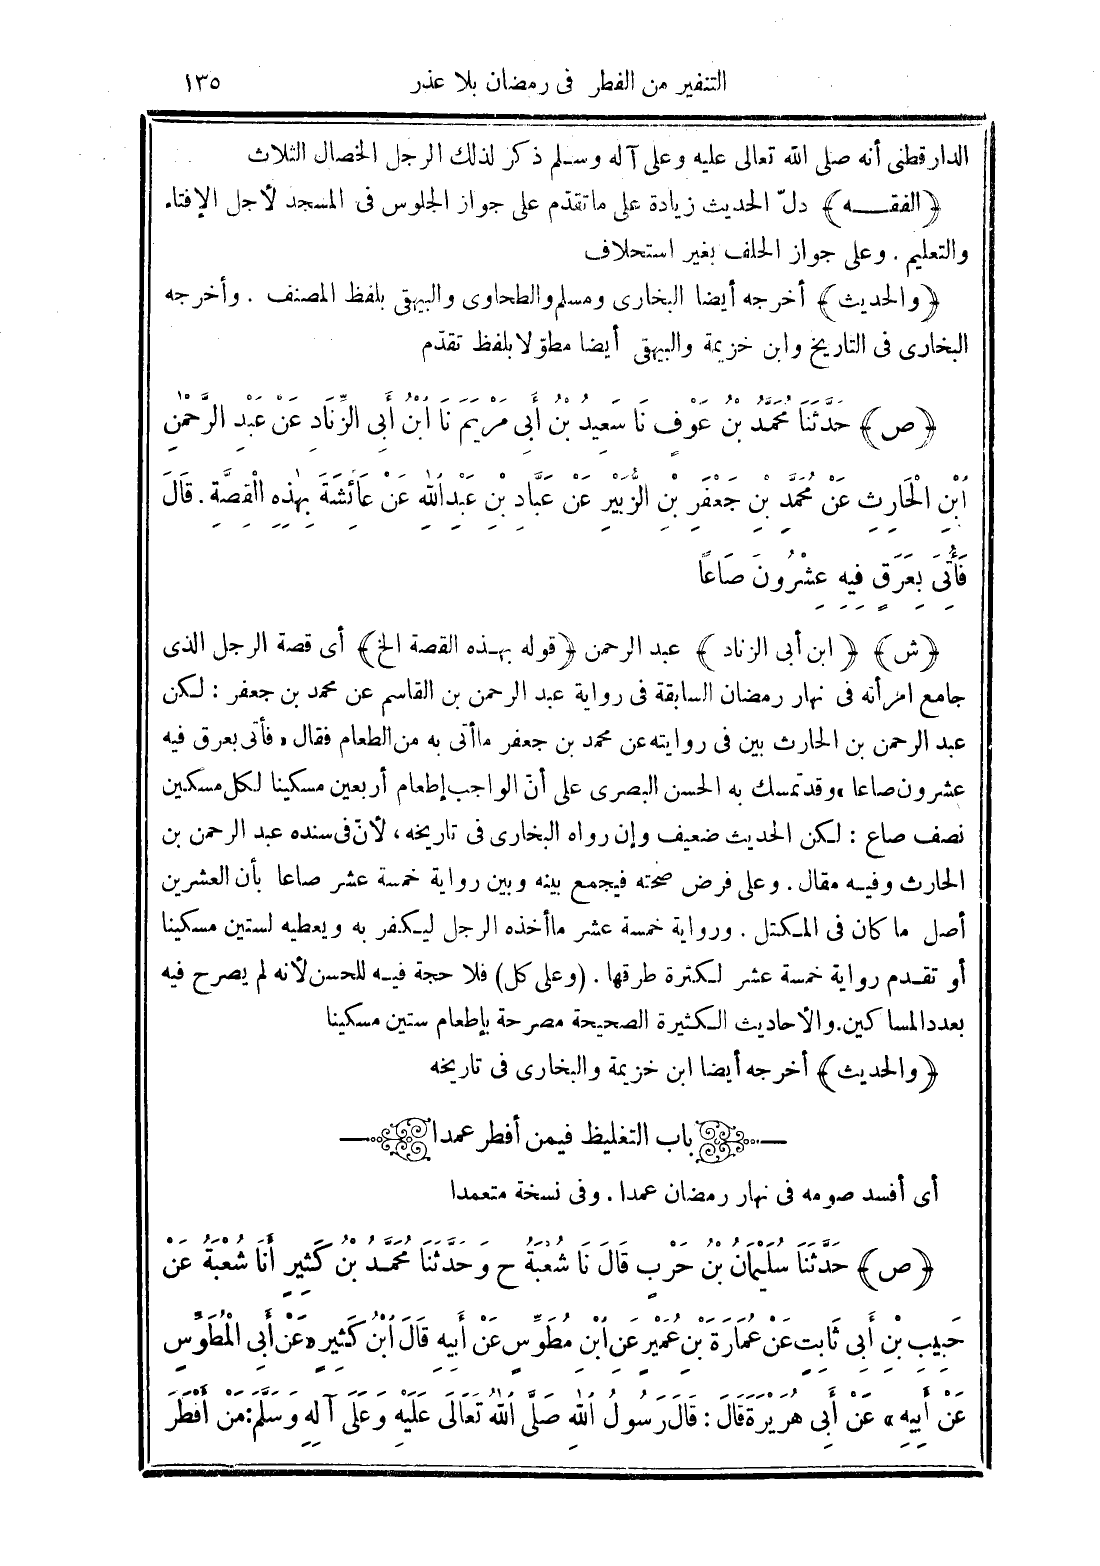 التنفير من الفطر فى رمضان بلا عذر ١٣٥
الدارقطنى أنه صلى الله تعالى عليه وعلى آله وسلم ذكر لذلك الرجل الخصال الثلاث
﴿الفقه﴾ دلّ الحديث زيادة على ماتقدّم على جواز الجلوس فى المسجد لأجل الإفتاء
والتعليم . وعلى جواز الحلف بغير استحلاف
﴿والحديث﴾ أخرجه أيضا البخارى ومسلم والطحاوى والبيهقى بلفظ المصنف . وأخرجه
البخارى فى التاريخ وابن خزيمة والبيهقى أيضا مطوّلا بلفظ تقدّم
﴿ص﴾ حَدَّثَنَا مُحَمَّدُ بْنُ عَوْفٍ نَا سَعِيدُ بْنُ أَبِى مَرْيَمَ نَا ابْنُ أَبِى الزِّنَادِ عَنْ عَبْدِ الرَّحْمٰنِ
ابْنِ الْحَارِثِ عَنْ مُحَمَّدِ بْنِ جَعْفَرِ بْنِ الزُّبَيْرِ عَنْ عَبَّادِ بْنِ عَبْدِ اللهِ عَنْ عَائِشَةَ بِهٰذِهِ الْقِصَّةِ . قَالَ
فَأُتِىَ بِعَرَقٍ فِيهِ عِشْرُونَ صَاعًا
﴿ش﴾ ﴿ابن أبى الزناد﴾ عبد الرحمن ﴿قوله بهذه القصة الخ﴾ أى قصة الرجل الذى
جامع امرأته فى نهار رمضان السابقة فى رواية عبد الرحمن بن القاسم عن محمد بن جعفر : لكن
عبد الرحمن بن الحارث بين فى روايته عن محمد بن جعفر ماأتى به من الطعام فقال «فأتى بعرق فيه
عشرون صاعا» وقد تمسك به الحسن البصرى على أنّ الواجب إطعام أربعين مسكينا لكل مسكين
نصف صاع : لكن الحديث ضعيف وإن رواه البخارى فى تاريخه، لأنّ فى سنده عبد الرحمن بن
الحارث وفيه مقال . وعلى فرض صحته فيجمع بينه وبين رواية خمسة عشر صاعا بأن العشرين
أصل ما كان فى المكتل . ورواية خمسة عشر ماأخذه الرجل ليكفر به ويعطيه لستين مسكينا
أو تقدم رواية خمسة عشر لكثرة طرقها . (وعلى كل) فلا حجة فيه للحسن لأنه لم يصرح فيه
بعدد المساكين. والأحاديث الكثيرة الصحيحة مصرحة بإطعام ستين مسكينا
﴿والحديث﴾ أخرجه أيضا ابن خزيمة والبخارى فى تاريخه
باب التغليظ فيمن أفطر عمدا
أى أفسد صومه فى نهار رمضان عمدا . وفى نسخة متعمدا
﴿ص﴾ حَدَّثَنَا سُلَيْمَانُ بْنُ حَرْبٍ قَالَ نَا شُعْبَةُ ح وَحَدَّثَنَا مُحَمَّدُ بْنُ كَثِيرٍ أَنَا شُعْبَةُ عَنْ
حَبِيبِ بْنِ أَبِى ثَابِتٍ عَنْ عُمَارَةَ بْنِ عُمَيْرٍ عَنِ ابْنِ مُطَوِّسٍ عَنْ أَبِيهِ قَالَ ابْنُ كَثِيرٍ «عَنْ أَبِى الْمُطَوِّسِ
عَنْ أَبِيهِ» عَنْ أَبِى هُرَيْرَةَ قَالَ : قَالَ رَسُولُ اللهِ صَلَّى اللهُ تَعَالَى عَلَيْهِ وَعَلَى آلِهِ وَسَلَّمَ: مَنْ أَفْطَرَ